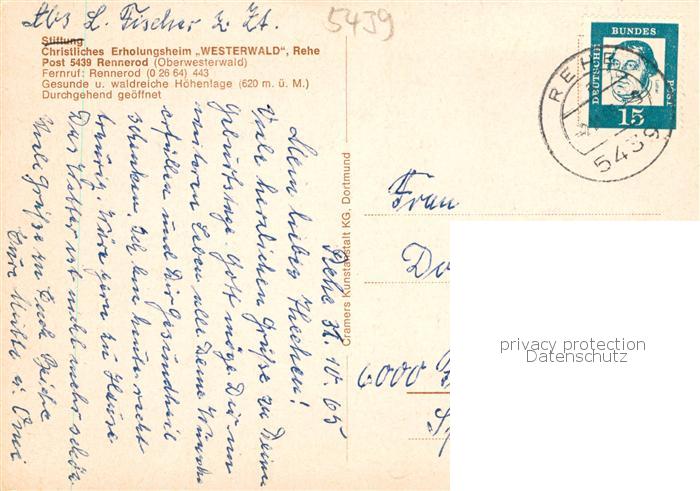 Abs L. Fischer z. Zt.
5439
Stiftung
Christliches Erholungsheim „WESTERWALD“, Rehe
Post 5439 Rennerod (Oberwesterwald)
Fernruf: Rennerod (0 26 64) 443
Gesunde u. waldreiche Höhenlage (620 m. ü. M.)
Durchgehend geöffnet
Rehe 31.10.65
Mein liebes
Viele herzlichen Grüße zu Deinem
Geburtstage. Gott möge Dir im
weiteren Leben alle Deine Wünsche
erfüllen und Dir Gesundheit
schenken. Ich bin heute recht
traurig. Wäre gern zu Hause
Das Wetter ist nicht mehr schön
Viele Grüße an Euch Beide
Eure Mutti u. Omi
Cramers Kunstanstalt KG, Dortmund
DEUTSCHE BUNDESPOST
15
REHE
5439
Frau
Do
6000
privacy protection
Datenschutz